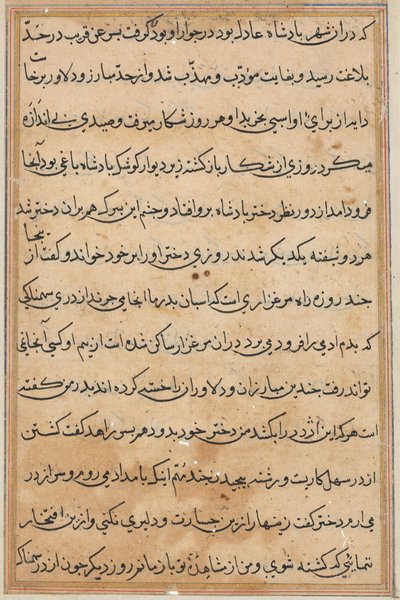 که در ان شهر بادشاه عادل بود در جوار او بود گرفت بسر عن قریب در حد
بلاغت رسید و بغایت مؤدب و مهذب شد و از حد مبارز و دلاور برخاست
دایه از برای او اسبی بخرید او هر روز شکار میرفت و صیدی بی اندازه
میکرد روزی از شکار باز گشته زیر دیوار کوشک بادشاه باغی بود آنجا
فرود امد از دور نظر دختر بادشاه برو افتاد و چشم این بسرک هم بران دختر شد
هر دو شیفته یکدیگر شدند روزی دختر او را بر خود خواند و گفت از اینجا
چند روزه راه مرغزاری است که اسبان بدر ما انجا می چرند اژدری سهمناکی
که بدم ادمی را فرو می برد در ان مرغزار ساکن شده است از بیم او کسی آنجا نمی
تواند رفت چندین مبارزان و دلاوران را خسته کرده اند بدر من گفته
است هر که این اژدر را بکشد من دختر خود بدو دهم بسر زاهد گفت کشتن
اژدر سهل کاریست و رشته بیچیدن چند منم اینک بامداد می روم و سر اژدر
می ارم دختر گفت زینهار ازین جسارت و دلیری نکنی و ازین افتخار
ننمائی که کشته شوی و من از مشاهده تو باز مانم روز دیگر چون اژدر سهمناک